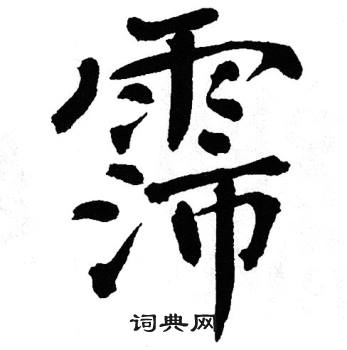 霈
词典网